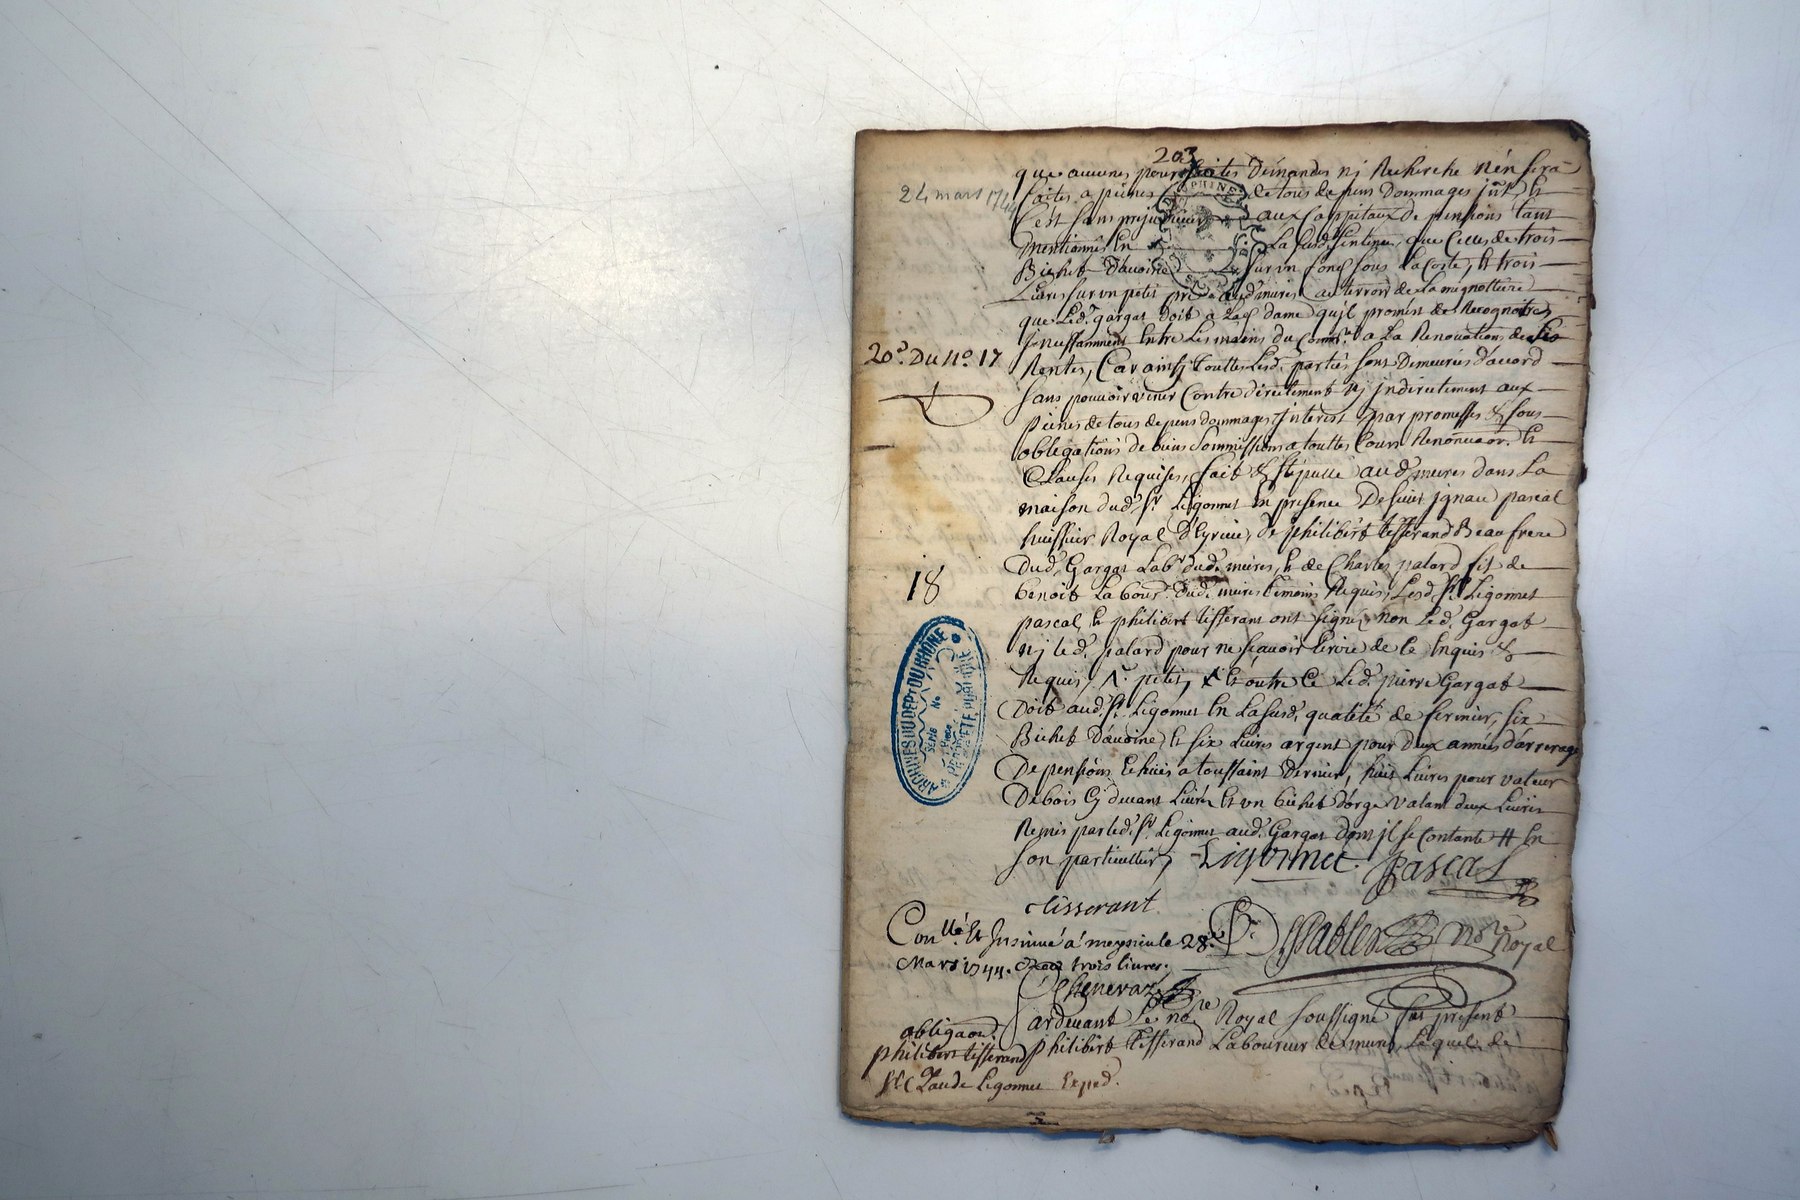 203
24 mars 1744
que aucunes poursuites demandes nj Recherche n'en sera
faites a peines de tous depens dommages jnt. Et
C'est sans prejudicier aux Cappitaux de pensions tant
mentionnés En La susd. sentence, que Celles de trois
Bichet d'avoine sur un fond sous La Coste, Et trois
Livres sur un petit pré aud. mures au terroir de la mignottiere
que Led. gargat doit a Lad. dame qu'il promest de Recognoitre
jncessamment Entre Les mains du Comre. a La Renovation de ses
20e. Du No. 17
Rentes, Car ainsj touttes Lesd. parties sont Demeurées d'acord
sans pouvoir venir Contre directement nj jndirectement aux
peines de tous depens dommages jnterest par promesses & sous
obligations de biens sommissions a touttes Cours Renonciaon. Et
Clauses Requises, fait & stipullé aud. mures dans La
maison dud. sr. Ligonnet En presence De sieur jgnace pascal
huissier Royal D'Eyrieu, de philibert tisserand Beaufrere
Dud. Gargat Labr. dud. mures, Et de Charles palard fils de
18
benoit Labour. dud. mures temoins Requis, Lesd. sr. Ligonnet
pascal, Et philibert tisserant ont signé non Led. Gargat
nj le d. palard pour ne sçavoir Ecrire de ce Enquis &
Requis, Et outre Ce Led. pierre Gargat
Doit aud. sr. Ligonnet En La susd. qualité de fermier, six
Bichet D'avoine, Et six Livres argent pour deux années d'arrerage
De pensions Echües a toussaint dernier, huit Livres pour valeur
De bois Cj devant Livré Et un bichet d'orge valant deux Livres
Remis par led. sr. Ligonnet aud. Gargat dont jl se Contante En
son particullier, Ligonnet Pascal
tisserant
Conllé. Et Insinué á meyzieu le 28e.
Nore Royal
Mars 1744. trois livres.
Cheneraz
ardevant Le nore Royal soussigné fut present
obligaon.
philibert tisserand Laboureur de mures, Lequel de
philibert tisserand
Sr. Claude Ligonnet Exped.
ARCHIVES DU DEPT DU RHÔNE
SÉRIE
No
Pièce
PROPRIÉTÉ PUBLIQUE